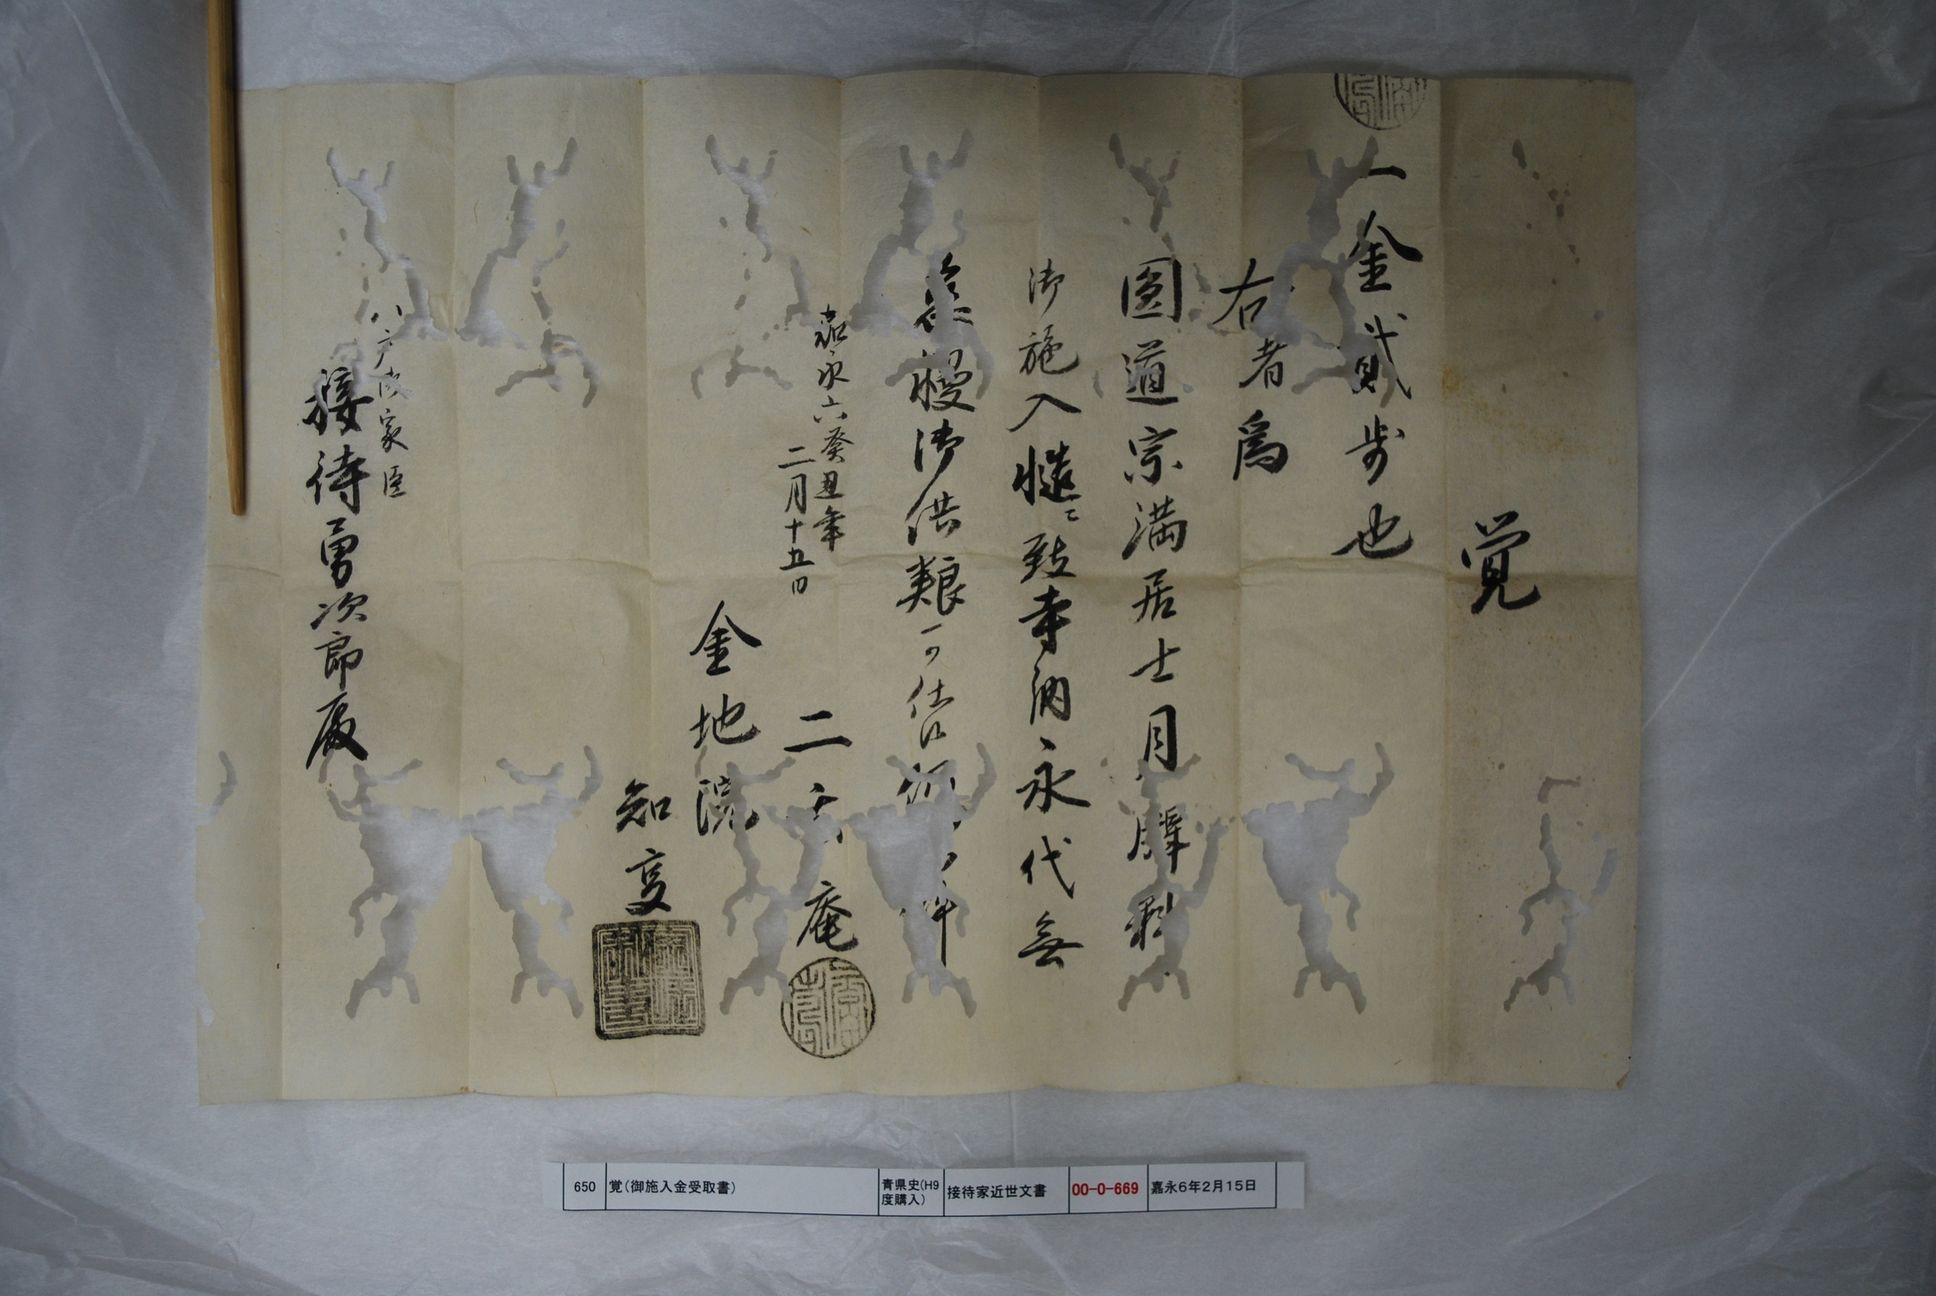 覚
一金貳歩也
右者為
圓道宗満居士月牌料
御施入慥ニ致寺納永代無
怠慢御供養可仕候
嘉永六癸丑年
二月十五日
二
庵
金地院
知
八戸御家臣
接待勇次郎殿
650 覚(御施入金受取書) 青県史(H9度購入) 接待家近世文書 00-0-669 嘉永6年2月15日